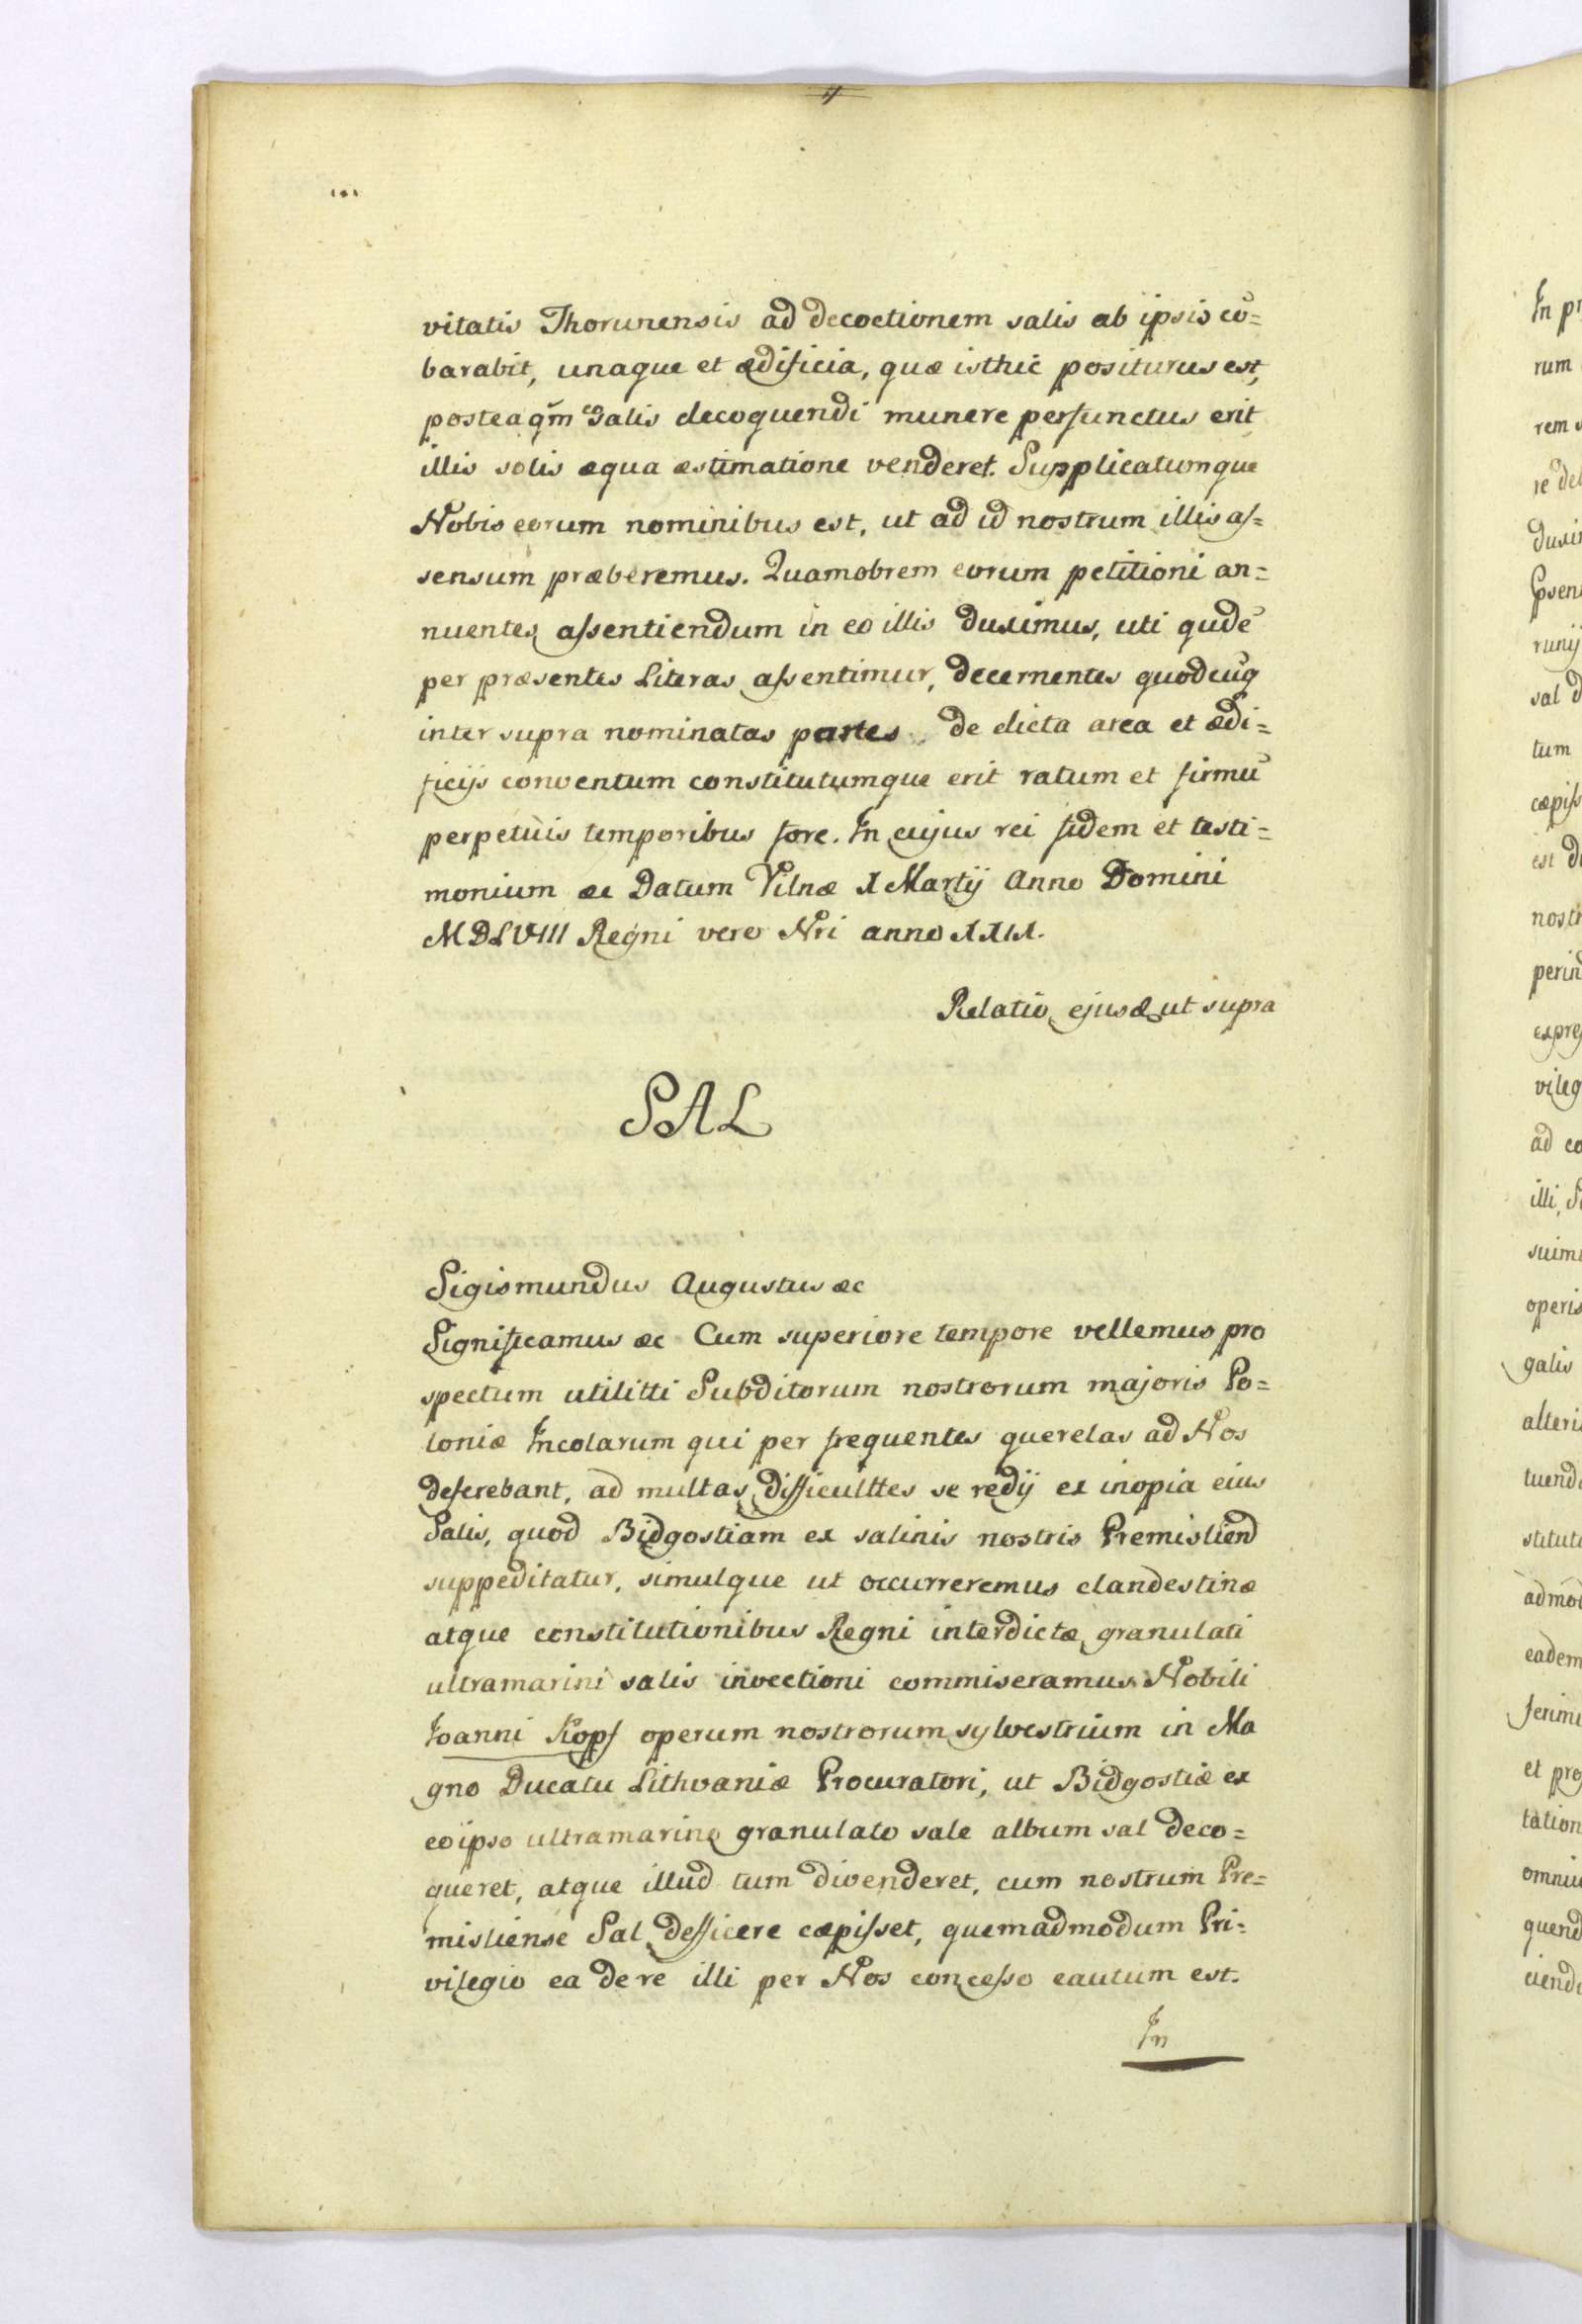 vitatis Thorunensis ad decoctionem salis ab ipsis cō=
barabit, unaque et ædificia, quæ isthic positurus est,
posteaqm̄ Salis decoquendi munere perfunctus erit
illis solis æqua æstimatione venderet. Supplicatumque
Nobis eorum nominibus est, ut ad id nostrum illis aſ=
sensum præberemus. Quamobrem eorum petitioni an=
nuentes aſsentiendum in eo illis duximus, uti qudē
per præsentes Literas aſsentimur, decernentes quodcūq
inter supra nominatas partes de dicta area et ædi=
ficijs conventum constitutumque erit ratum et firmū
perpetuis temporibus fore. In cujus rei fidem et testi=
monium æc Datum Vilnæ X Martij Anno Domini
MDLVIII Regni vero Nri anno XXIX.
Relatio ejusd ut supra
SAL
Sigismundus Augustus æc
Significamus æc Cum superiore tempore vellemus pro
spectum utilitti Subditorum nostrorum majoris Po=
loniæ Incolarum qui per frequentes querelas ad Nos
deferebant, ad multas difficulttes se redij ex inopia eius
Salis, quod Bidgostiam ex salinis nostris Premisliend
suppeditatur, simulque ut occurreremus clandestinæ
atque constitutionibus Regni interdictæ granulati
ultramarini salis invectioni commiseramus Nobili
Joanni Kopf operum nostrorum sylvestrium in Ma
gno Ducatu Lithvaniæ Procuratori, ut Bidgostiæ ex
eo ipso ultramarino granulato sale album sal deco=
queret, atque illud tum divenderet, cum nostrum Pre=
misliense Sal defficere cæpiſset, quemadmodum Pri=
vilegio ea de re illi per Nos conceſso cautum est.
In
In pr
rum
rem
tum
nostr
perind
vileg
ad co
illi, S
operis
galis
alteri
eadem
et pro
tation
quend